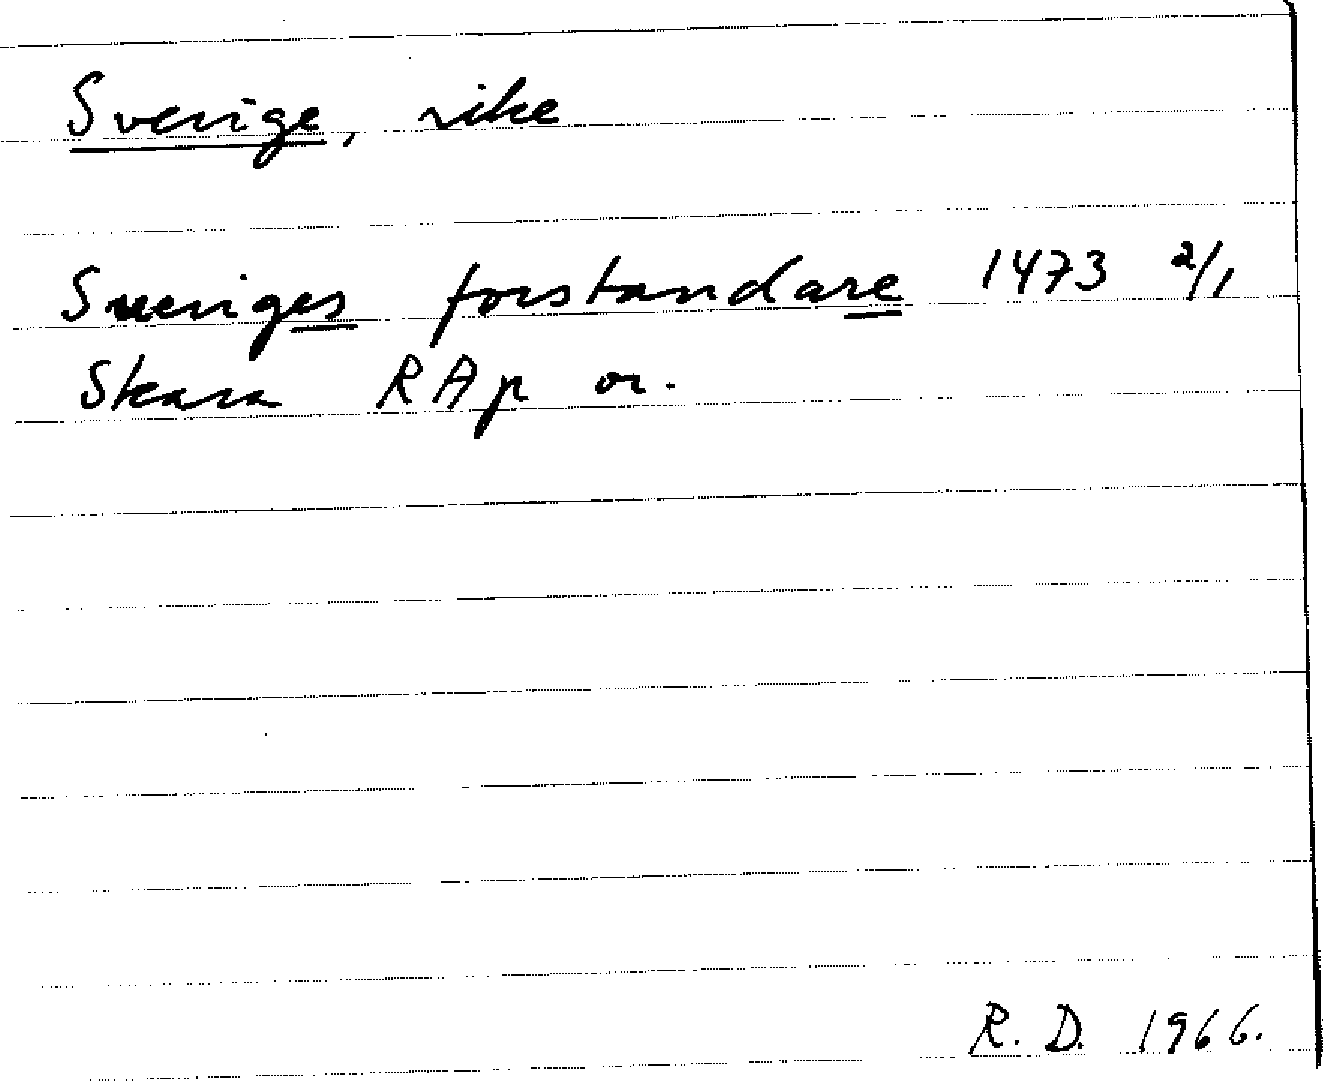 Sverige, rike
Sueriges forstandare 1473 2/1
Skara RAp or.
R. D. 1966.